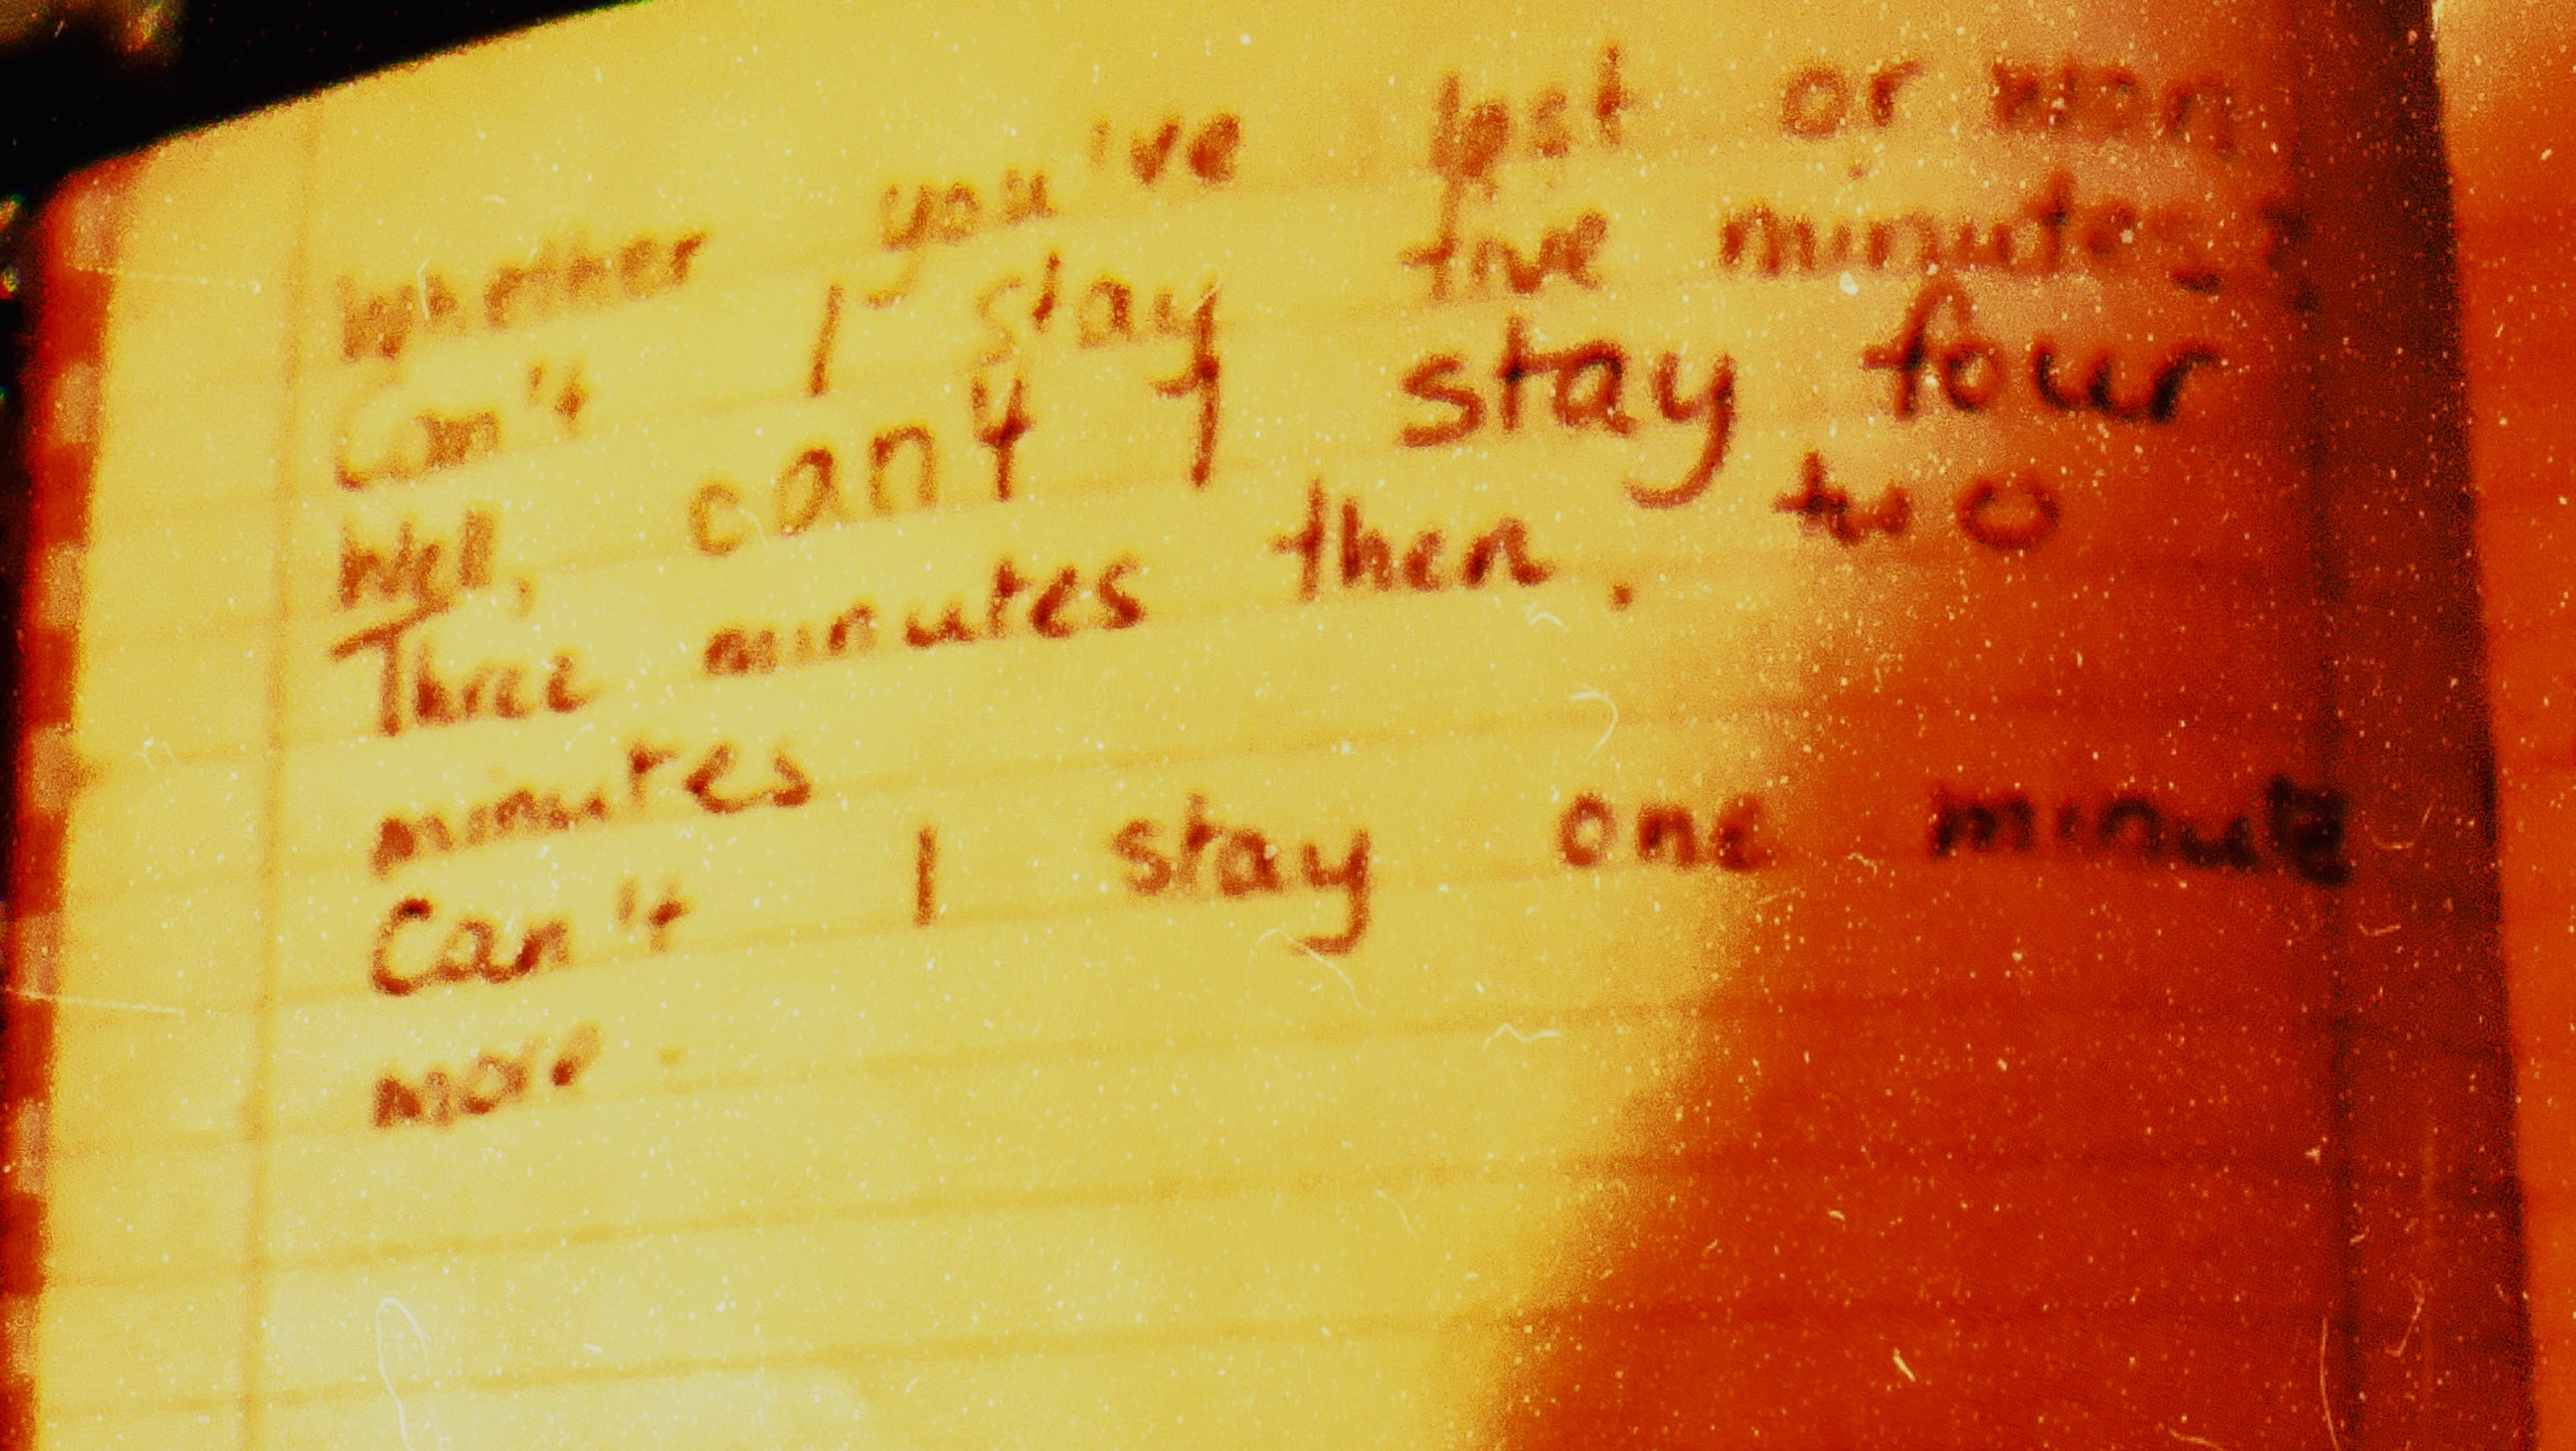 Whether you've lost or won,
Can't I stay five minutes?
Well, can't I stay four
Three minutes then. two
minutes
Can't I stay one minute
more.